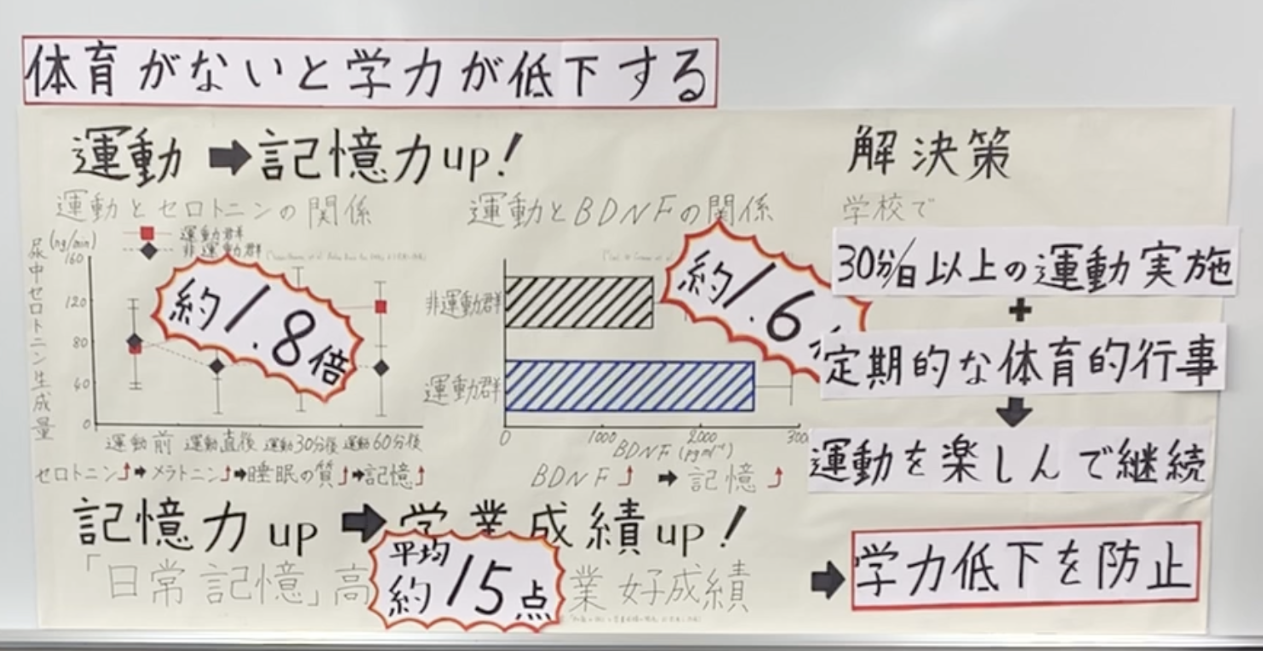 体育がないと学力が低下する
運動➡記憶力up!
運動とセロトニンの関係
(ng/min)
運動群
非運動群
尿中セロトニン生成量
160
120
80
40
0
約1.8倍
運動前 運動直後 運動30分後 運動60分後
セロトニン↑➡メラトニン↑➡睡眠の質↑➡記憶↑
運動とBDNFの関係
約1.6
非運動群
運動群
0 1000 2000 300
BDNF (pg ml⁻¹)
BDNF↑➡記憶↑
記憶力up➡学業成績up!
「日常記憶」高
平均
約15点
業好成績
解決策
学校で
30分/日以上の運動実施
+
定期的な体育的行事
⬇
運動を楽しんで継続
➡学力低下を防止